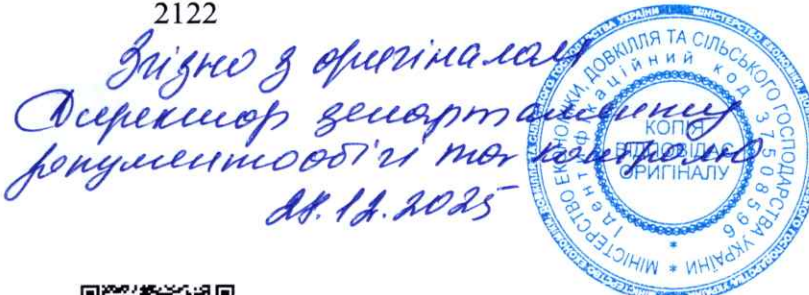 2122
Згідно з оригіналом
Директор департаменту
документообігу та контролю
24.12.2025
МІНІСТЕРСТВО ЕКОНОМІКИ, ДОВКІЛЛЯ ТА СІЛЬСЬКОГО ГОСПОДАРСТВА УКРАЇНИ
Ідентифікаційний код 37508596
КОПІЯ
ВІДПОВІДАЄ
ОРИГІНАЛУ